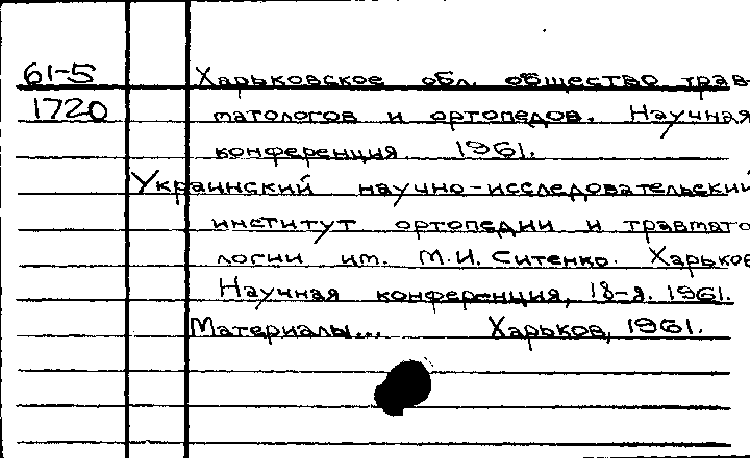 61-5 Харьковское обл. общество трав-
1720 матологов и ортопедов. Научная
конференция 1961.
Украинский научно-исследовательский
институт ортопедии и травмато
логии им. М.И. Ситенко. Харьков
Научная конференция, 18-я. 1961.
Материалы... Харьков, 1961.